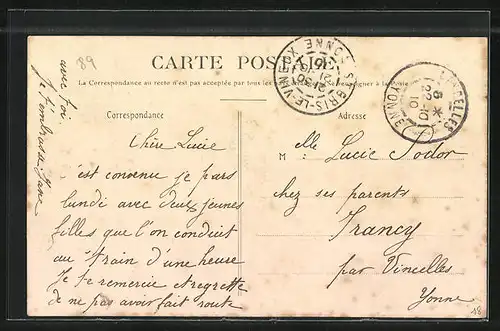 89
CARTE POSTALE
La Correspondance au recto n'est pas acceptée par tous les
à la Poste
Correspondance
Adresse
Chère Lucie
c'est convenu je pars
lundi avec deux jeunes
filles que l'on conduit
au train d'une heure
Je te remercie et regrette
de ne pas avoir fait route
avec toi.
Je t'embrasse Jane
Melle Lucie Sodor
chez ses parents
Irancy
par Vincelles
Yonne
ST BRIS-LE-VINEUX
YONNE
21-10
VINCELLES
6 *
22-10
10
YONNE
18